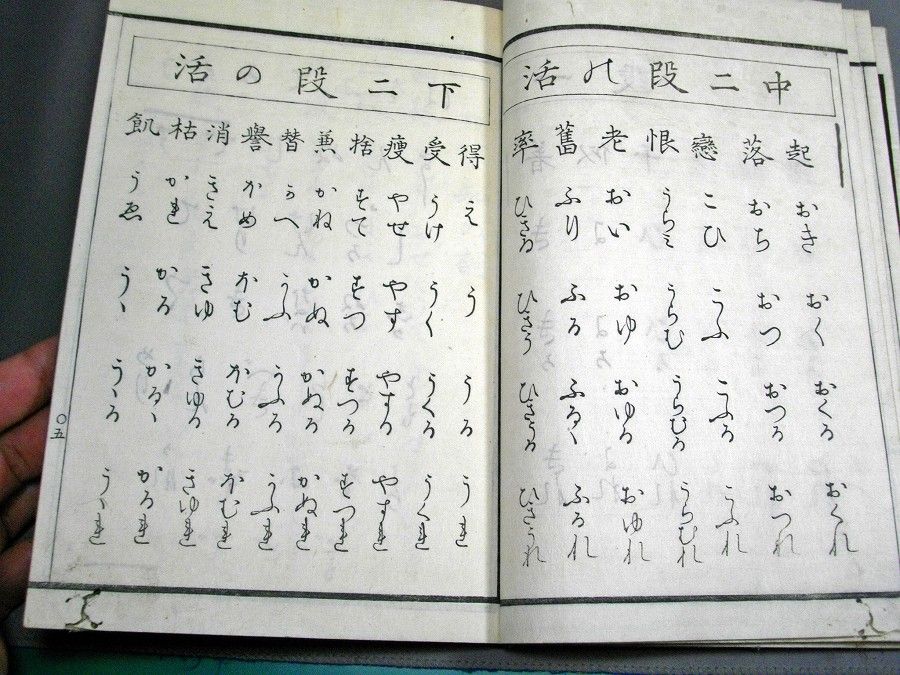 中二段の活
起 おき おく おくる おくれ
落 おち おつ おつる おつれ
戀 こひ こふ こふる こふれ
恨 うらミ うらむ うらむる うらむれ
老 おい おゆ おゆる おゆれ
舊 ふり ふる ふるゝ ふるれ
率 ひきゐ ひきう ひきうる ひきうれ
下二段の活
得 え う うる うれ
受 うけ うく うくる うくれ
痩 やせ やす やする やすれ
捨 すて すつ すつる すつれ
兼 かね かぬ かぬる かぬれ
替 かへ かふ かふる かふれ
譽 ほめ ほむ ほむる ほむれ
消 きえ きゆ きゆる きゆれ
枯 かれ かる かるゝ かるれ
飢 うゑ うゝ うゝる うゝれ
〇五